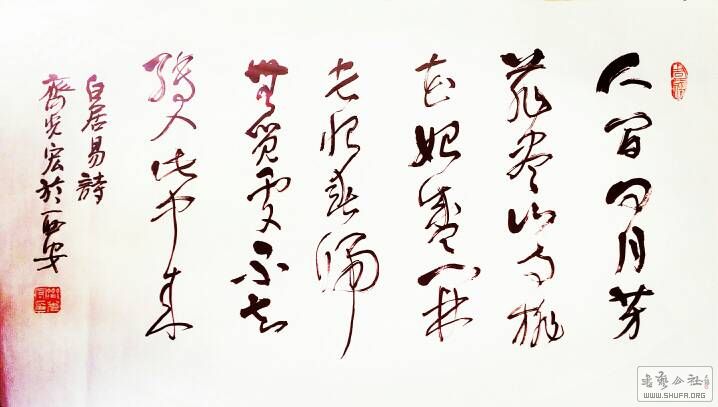 人間四月芳
菲盡山寺桃
花始盛開
長恨春歸
無覓處不知
轉入此中來
白居易詩
齊光宏於西安
書藝公社
WWW.SHUFA.ORG